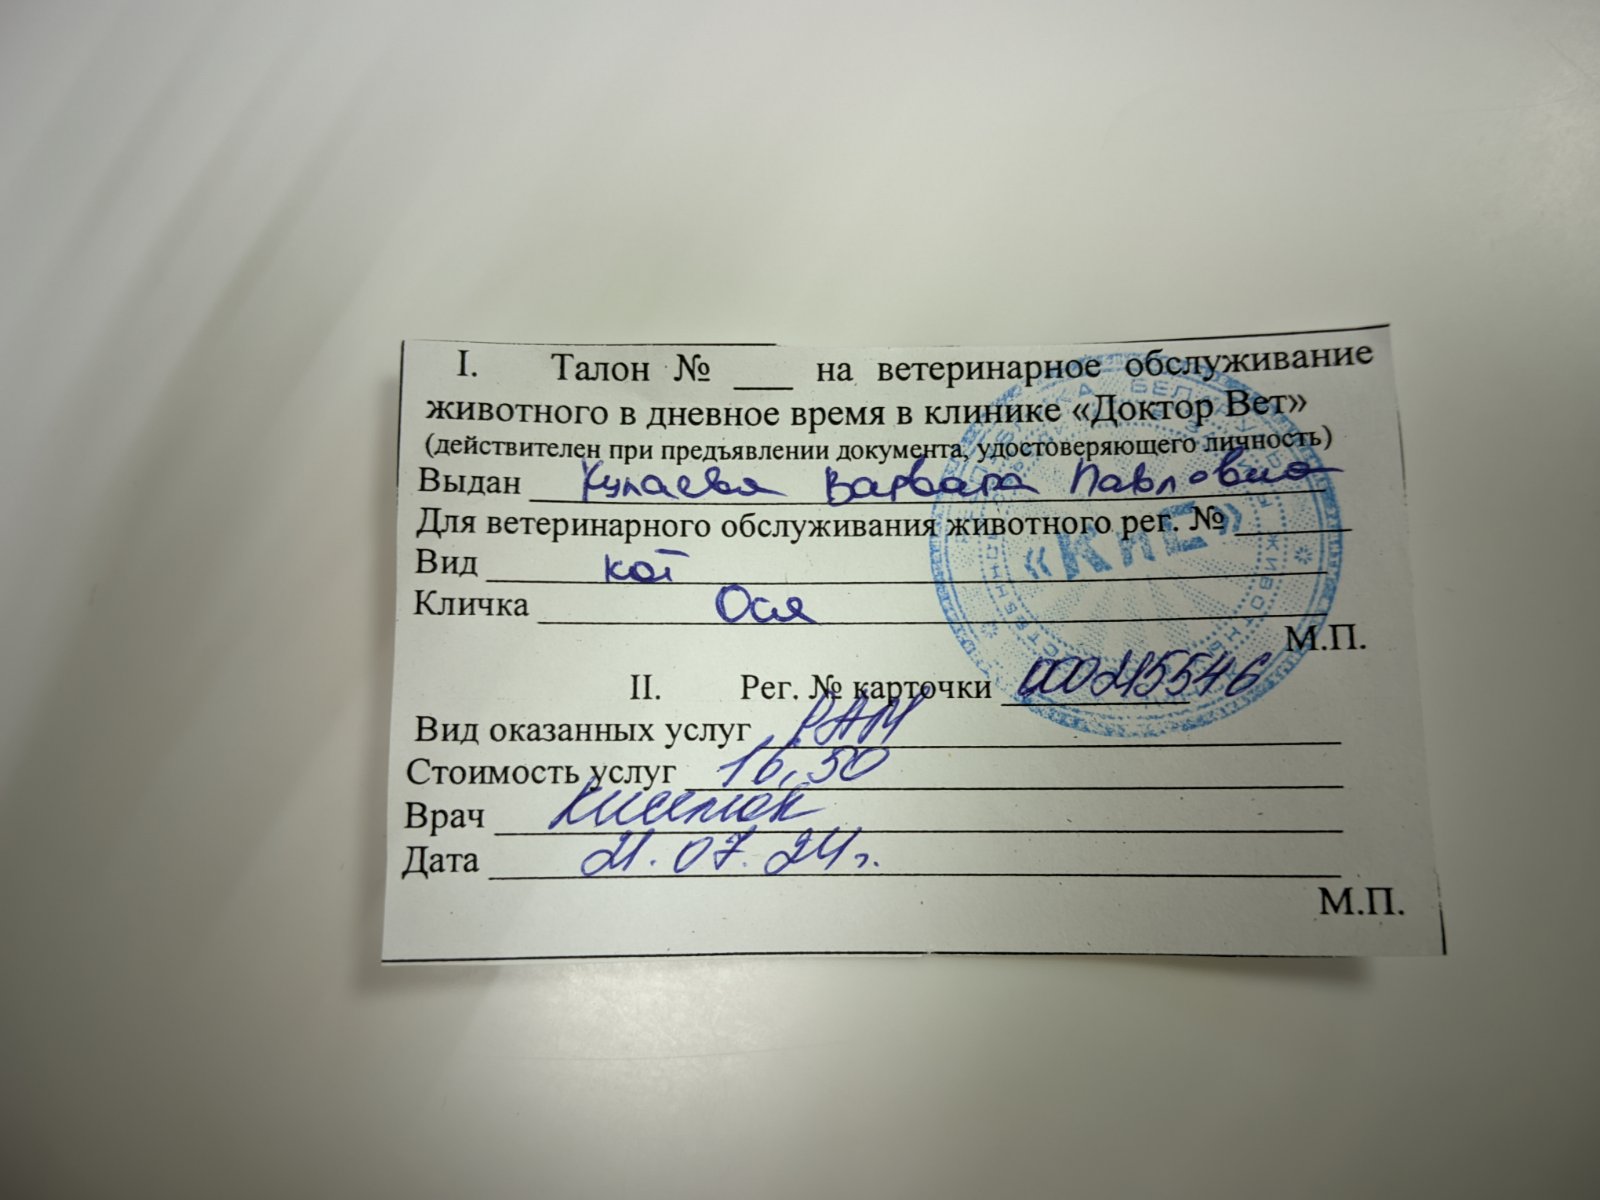 I. Талон № ___ на ветеринарное обслуживание
животного в дневное время в клинике «Доктор Вет»
(действителен при предъявлении документа, удостоверяющего личность)
Выдан Варвара Павловна
Для ветеринарного обслуживания животного рег. № ______
Вид кот
Кличка Ося
«КиЕ»
М.П.
II. Рег. № карточки 000215546
Вид оказанных услуг РАМ
Стоимость услуг 16,50
Врач
Дата 21.07.24г.
М.П.